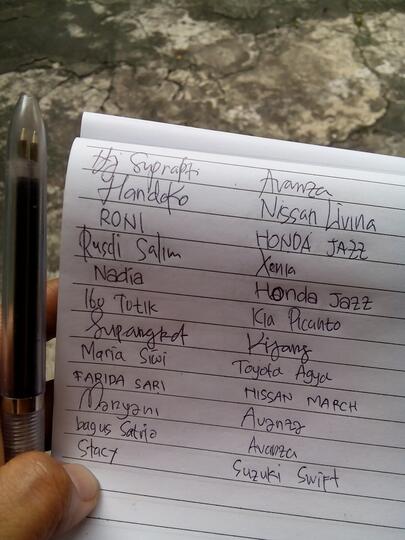 Hj Suprapti Avanza
Handoko Nissan Livina
RONI HONDA JAZZ
Rusdi Salim Xenia
Nadia Honda Jazz
Ibu Tutik Kia Picanto
Supangkat Kijang
Maria Siwi Toyota Agya
FARIDA SARI NISSAN MARCH
Maryani Avanza
bagus Satrio Avanza
Stacy Suzuki Swift